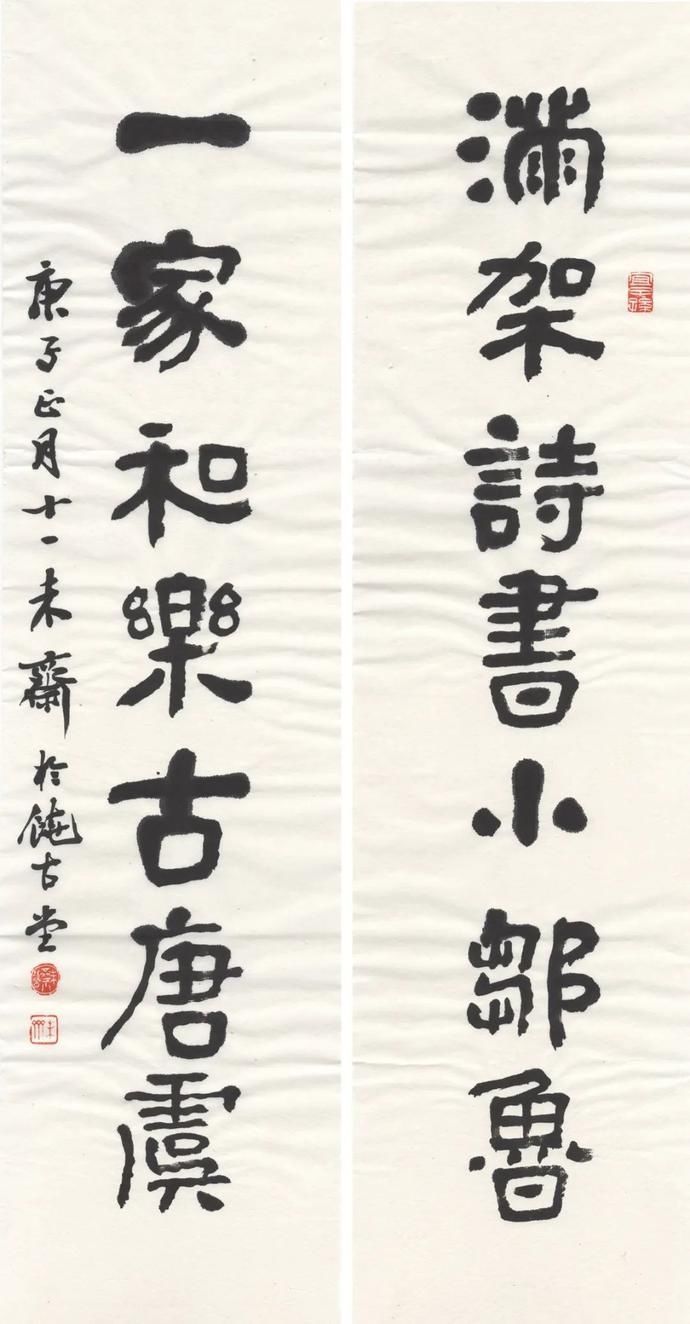 滿架詩書小鄒魯
一家和樂古唐虞
庚子正月十一未齋於饒古堂